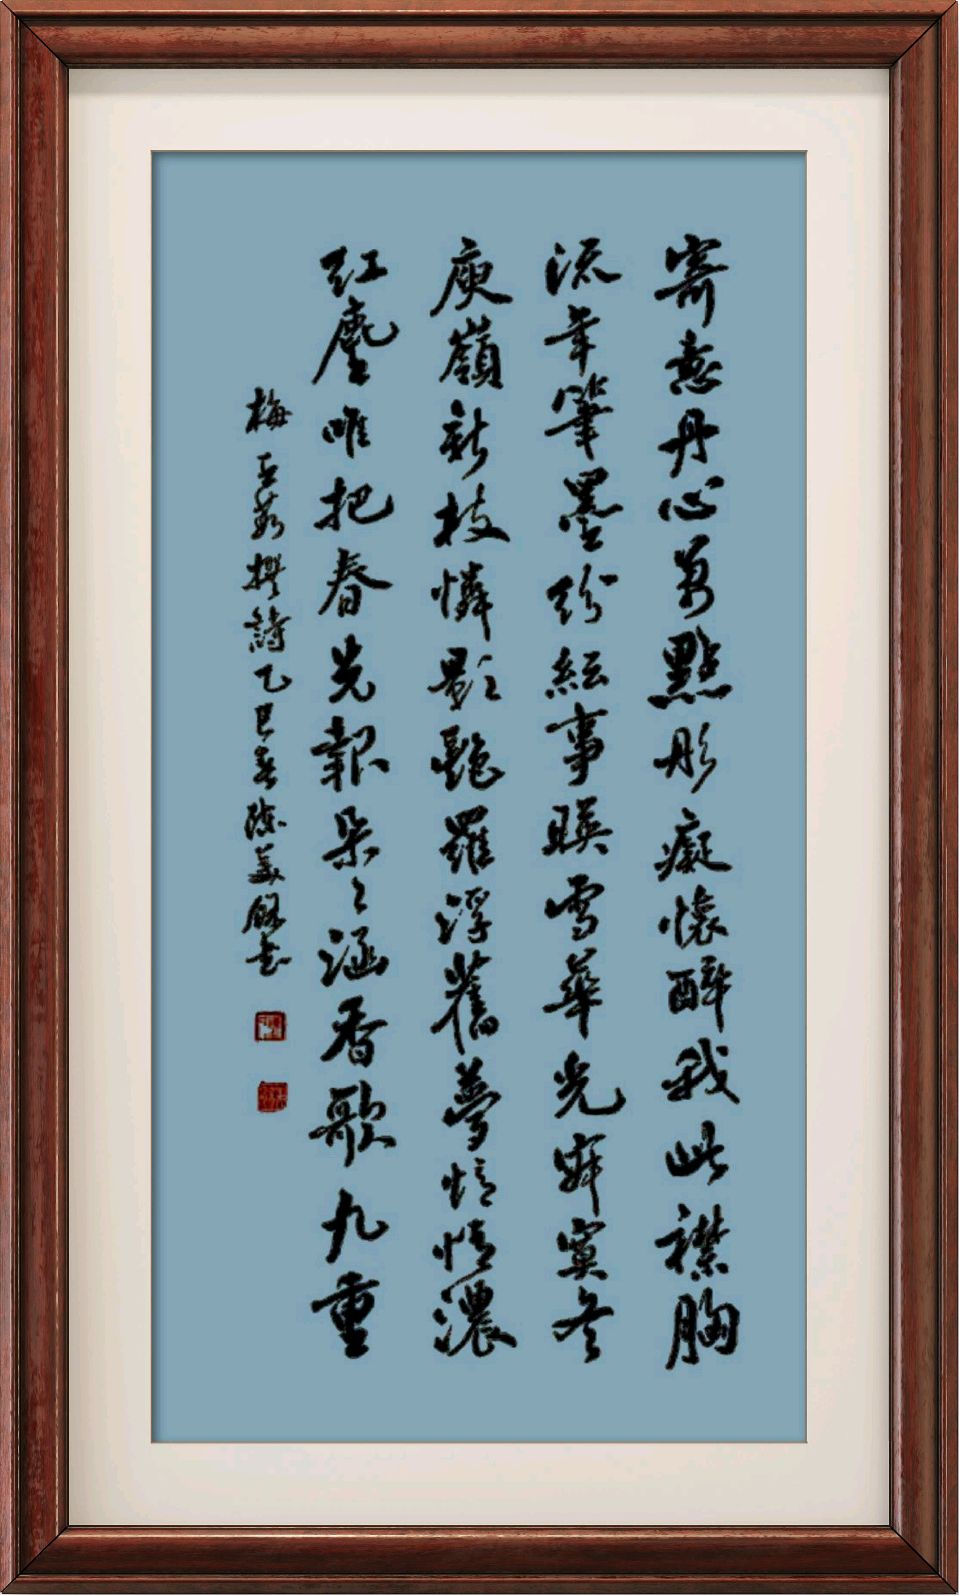 寄意丹心萬點彤癡懷醉我此襟胸
流年筆墨紛紜事映雪華光寂寞冬
庾嶺新枝憐影艷羅浮舊夢憶情濃
紅塵唯把春先報朵々涵香歌九重
梅 撰詩乙巳春陳美銀書